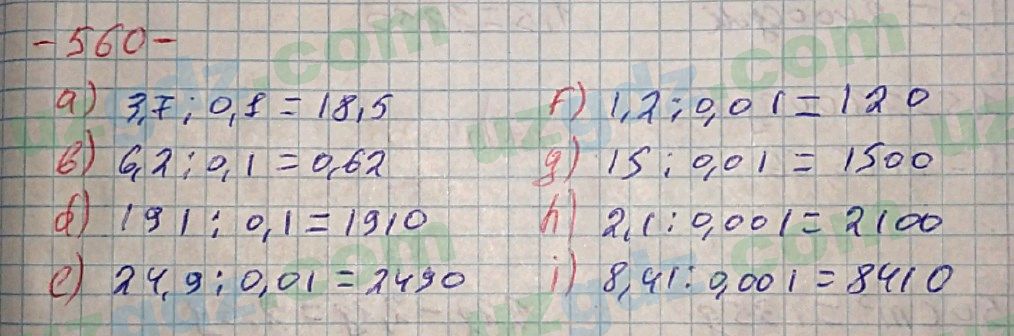 -560-
a) 3,7 : 0,1 = 18,5
b) 6,2 : 0,1 = 0,62
d) 191 : 0,1 = 1910
e) 24,9 : 0,01 = 2490
f) 1,2 : 0,01 = 120
g) 15 : 0,01 = 1500
h) 2,1 : 0,001 = 2100
i) 8,41 : 0,001 = 8410
uzgdz.com
uzgdz.com